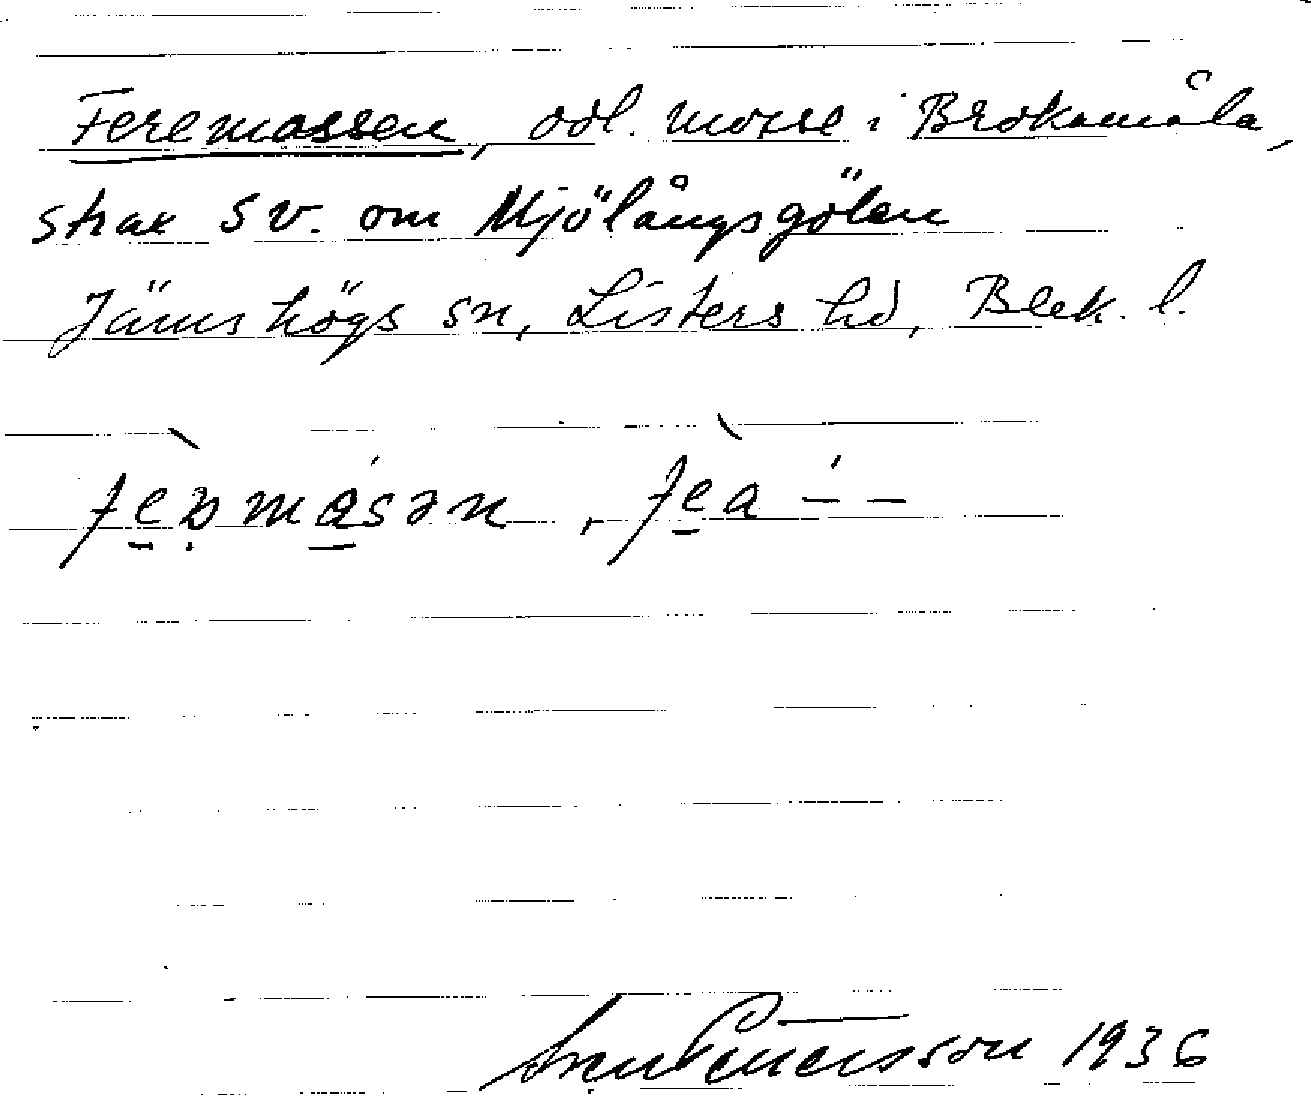 Feremossen, odl. mosse i Brokamåla,
strax SV. om Mjölångsgölen
Jämshögs sn, Listers hd, Blek. l.
1936